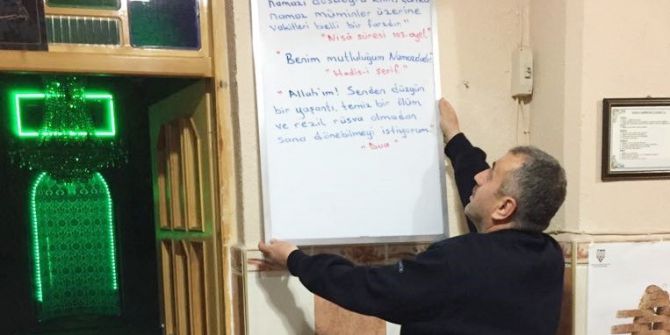 Namazı dosdoğru kılın, çünkü
namaz müminler üzerine
vakitleri belli bir farzdır."
"Nisâ sûresi 103. ayet"
"Benim mutluluğum Namazdadır"
"Hadis-i şerif"
"Allah'ım! Senden düzgün
bir yaşantı, temiz bir ölüm
ve rezil rüsva olmadan
sana dönebilmeyi istiyorum.
"Dua"